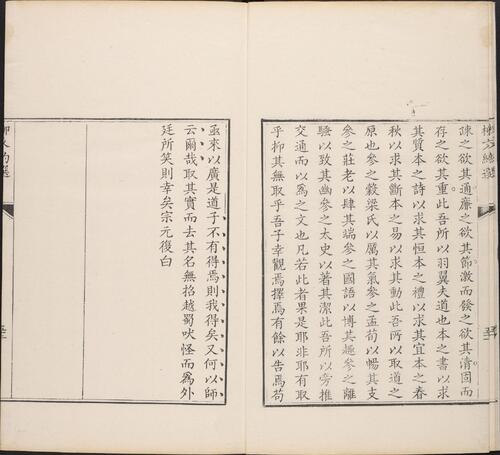 疎之欲其通廉之欲其節激而發之欲其清固而
存之欲其重此吾所以羽翼夫道也本之書以求
其質本之詩以求其恒本之禮以求其宜本之春
秋以求其斷本之易以求其動此吾所以取道之
原也參之穀梁氏以厲其氣參之孟荀以暢其支
參之莊老以肆其端參之國語以博其趣參之離
騷以致其幽參之太史以著其潔此吾所以旁推
交通而以爲之文也凡若此者果是耶非耶有取
乎抑其無取乎吾子幸觀焉擇焉有餘以告焉苟
亟來以廣是道子不有得焉則我得矣又何以師
云爾哉取其實而去其名無招越蜀吠怪而爲外
廷所笑則幸矣宗元復白